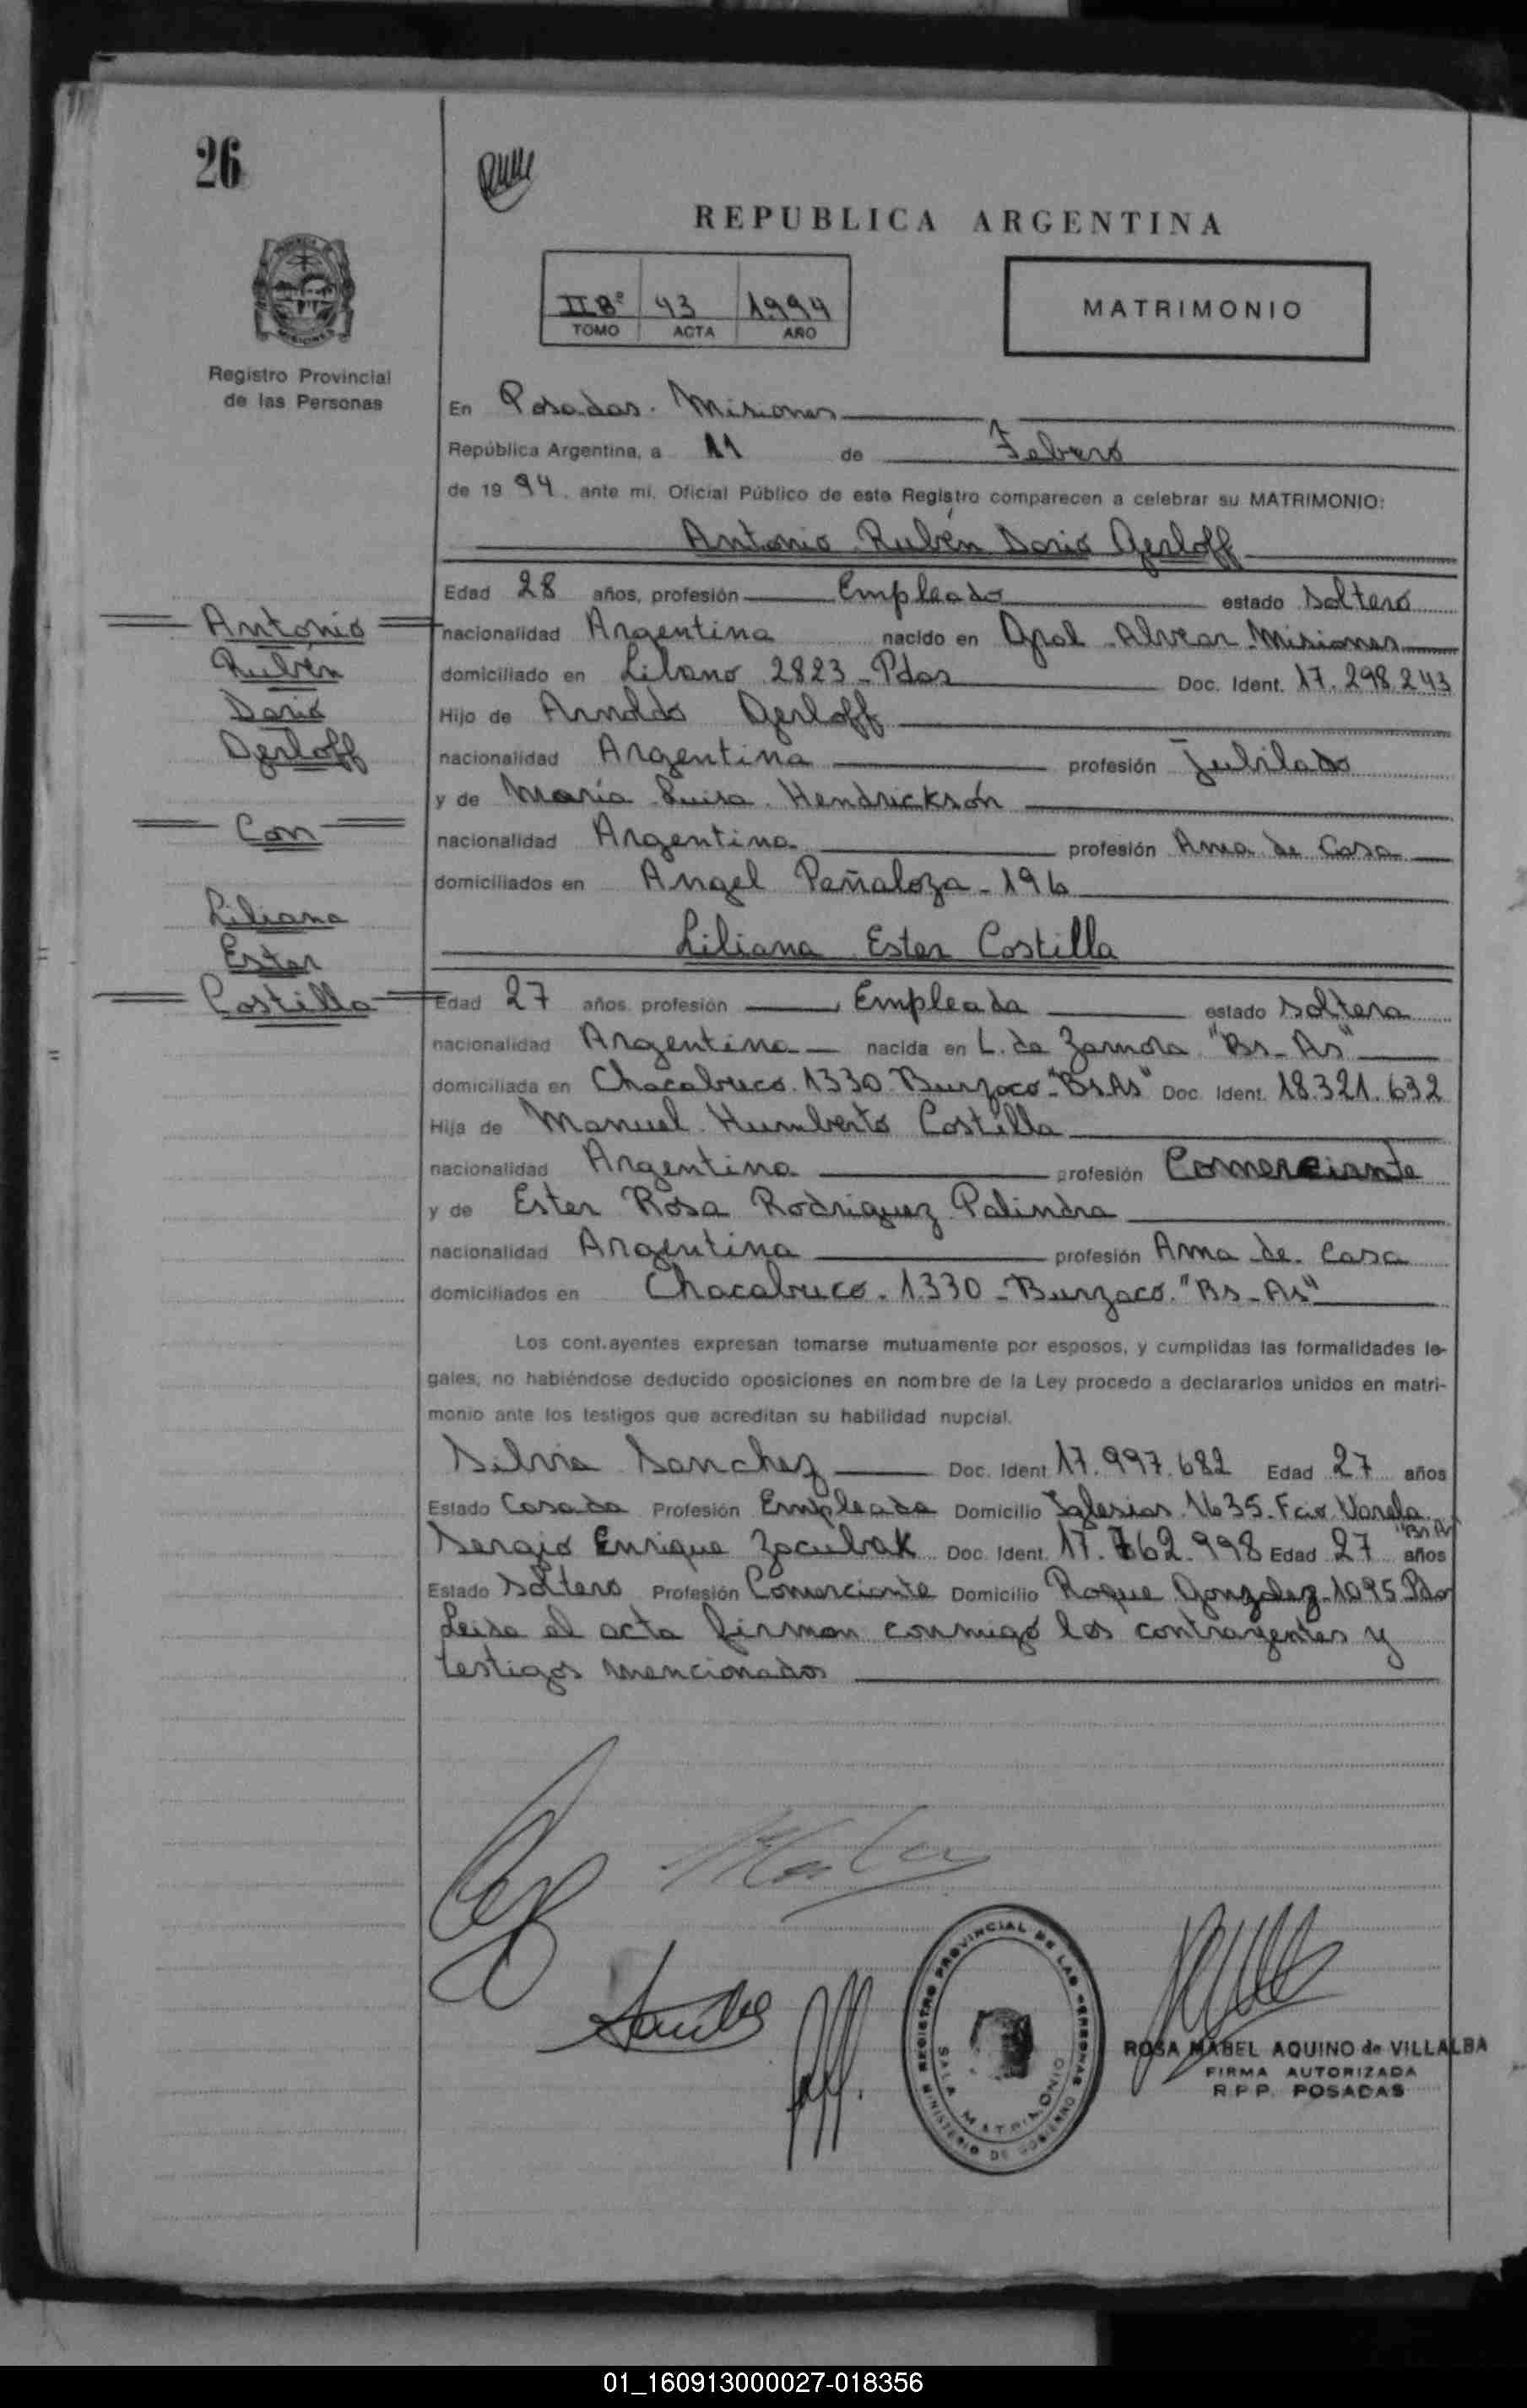 26
REPUBLICA ARGENTINA
II Bº 43 1994
TOMO ACTA AÑO
MATRIMONIO
Registro Provincial
de las Personas
En Posadas. Misiones
República Argentina, a 11 de Febrero
de 1994, ante mi, Oficial Público de este Registro comparecen a celebrar su MATRIMONIO:
Antonio Rubén Dario Gerloff
Edad 28 años, profesión Empleado estado soltero
nacionalidad Argentina nacido en Gral Alvear Misiones
domiciliado en Libano 2823 - Pdas Doc. Ident. 17.298.243
Hijo de Arnoldo Gerloff
nacionalidad Argentina profesión Jubilado
y de María Luisa Hendrickson
nacionalidad Argentina profesión Ama de Casa
domiciliados en Angel Peñaloza - 196
Liliana Ester Costilla
Edad 27 años, profesión Empleada estado soltera
nacionalidad Argentina nacida en L. de Zamora "Bs-As"
domiciliada en Chacabuco. 1330 Burzaco "Bs.As" Doc. Ident. 18.321.632
Hija de Manuel Humberto Costilla
nacionalidad Argentina profesión Comerciante
y de Ester Rosa Rodriguez Palindra
nacionalidad Argentina profesión Ama de Casa
domiciliados en Chacabuco. 1330 - Burzaco. "Bs-As"
Antonio
Rubén
Dario
Gerloff
Con
Liliana
Ester
Costilla
Los cont.ayentes expresan tomarse mutuamente por esposos, y cumplidas las formalidades le-
gales, no habiéndose deducido oposiciones en nombre de la Ley procedo a declararlos unidos en matri-
monio ante los testigos que acreditan su habilidad nupcial.
Silvia Sanchez Doc. Ident 17.997.682 Edad 27 años
Estado Casada Profesión Empleada Domicilio Iglesias. 1635. Fcio Varela "Bs As"
Sergio Enrique Zacubak Doc. Ident. 17.762.998 Edad 27 años
Estado soltero Profesión Comerciante Domicilio Roque Gonzalez - 1095 Pdas
Leida el acta firman conmigo los contrayentes y
testigos mencionados
REGISTRO PROVINCIAL DE LAS PERSONAS
MINISTERIO DE GOBIERNO
SALA MATRIMONIO
ROSA MABEL AQUINO de VILLALBA
FIRMA AUTORIZADA
R.P.P. POSADAS
01_160913000027-018356